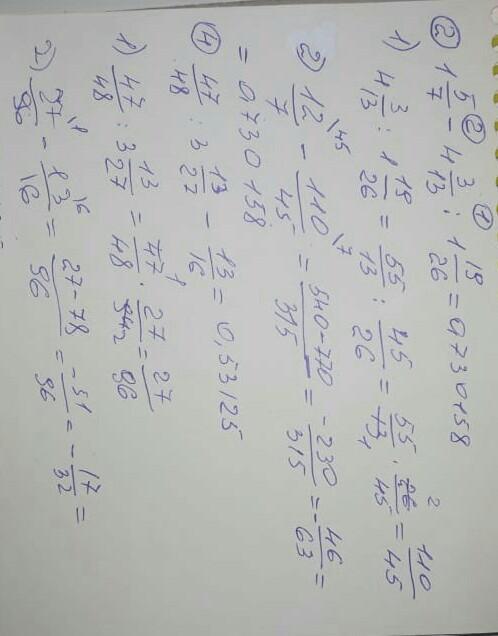 ② 1 5/7 ② - 4 3/13 : ① 1 19/26 = 0,730158
1) 4 3/13 : 1 19/26 = 55/13 : 45/26 = 55/13 1 · 26 2/45 = 110/45
2) 12/7 \45 - 110/45 \7 = 540-770/315 = -230/315 = -46/63 =
= 0,730158
④ 47/48 : 3 13/27 - 13/16 = 0,53125
1) 47/48 : 3 13/27 = 47 1/48 · 27/94 2 = 27/96
2) 27/96 \1 - 13/16 \6 = 27-78/96 = -51/96 = -17/32 =